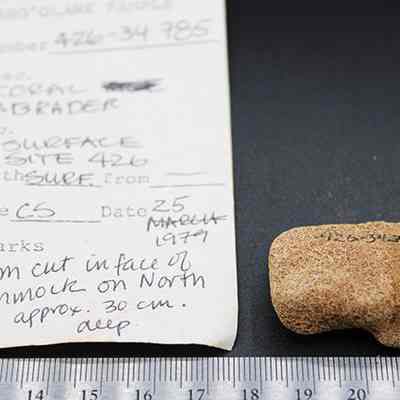 426-34 785
CORAL
ABRADER
SURFACE
SITE 426
SURF. from
CS Date 25
MARCH
1979
arks
m cut in face of
mmock on North
approx. 30 cm.
deep
14 15 16 17 18 19 20